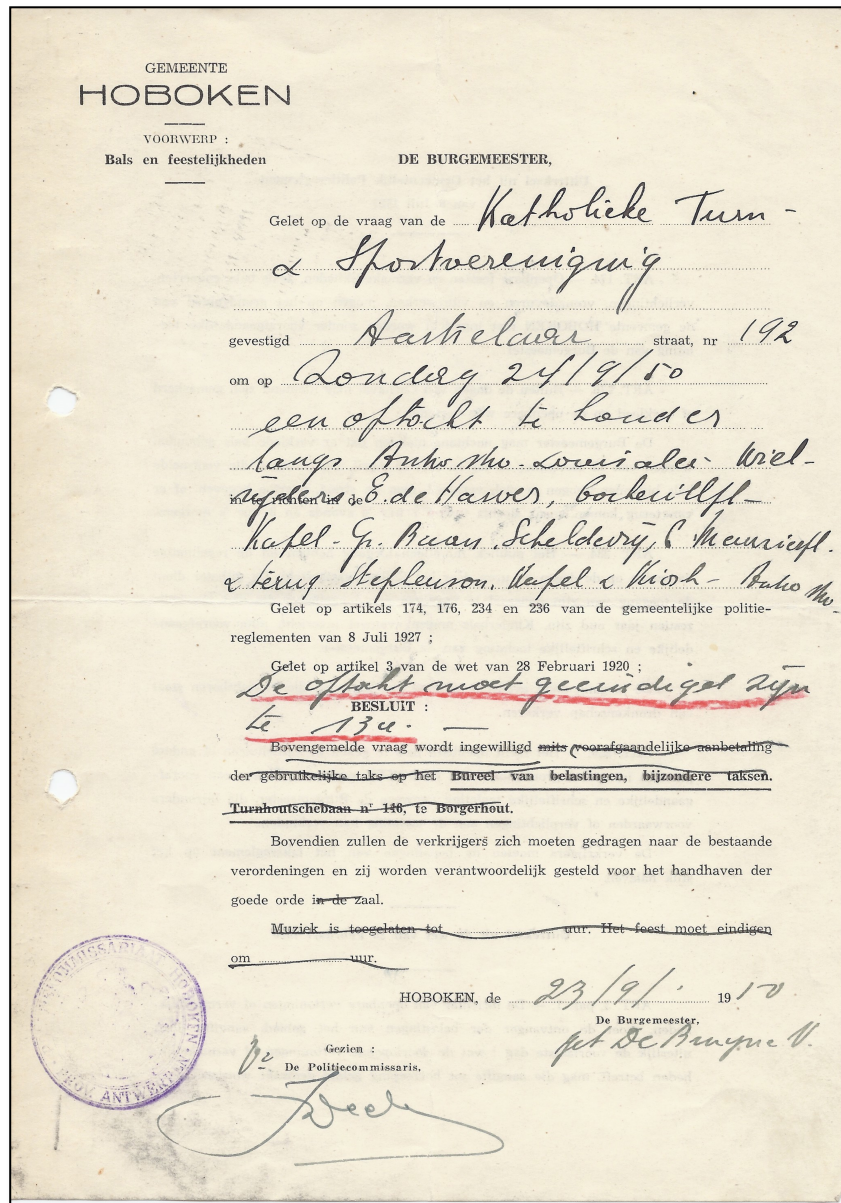 GEMEENTE
HOBOKEN
VOORWERP :
Bals en feestelijkheden
DE BURGEMEESTER,
Gelet op de vraag van de Katholieke Turn -
& Sportvereniging
gevestigd Aartselaar straat, nr 192
om op Zondag 24/9/50
een optocht te houden
langs Antw stw. Louisalei- Wiel-
in te richten in de E. de Harven, Cockerillpl-
Kapel - Gr. Baan. Scheldevrij,
& terug Stephenson, Kapel & Kiosk - Antw stw.
Gelet op artikels 174, 176, 234 en 236 van de gemeentelijke politie-
reglementen van 8 Juli 1927 ;
Gelet op artikel 3 van de wet van 28 Februari 1920 ;
De optocht moet geëindigd zijn
BESLUIT :
te 13 u. —
Bovengemelde vraag wordt ingewilligd mits voorafgaandelijke aanbetaling
der gebruikelijke taks op het Bureel van belastingen, bijzondere taksen.
Turnhoutschebaan nr 146, te Borgerhout.
Bovendien zullen de verkrijgers zich moeten gedragen naar de bestaande
verordeningen en zij worden verantwoordelijk gesteld voor het handhaven der
goede orde in de zaal.
Muziek is toegelaten tot uur. Het feest moet eindigen
om uur.
HOBOKEN, de 23/9/. 1950
De Burgemeester,
get De Bruyne V.
Gezien :
De Politiecommissaris,
HOBOKEN
PROV. ANTWERPEN